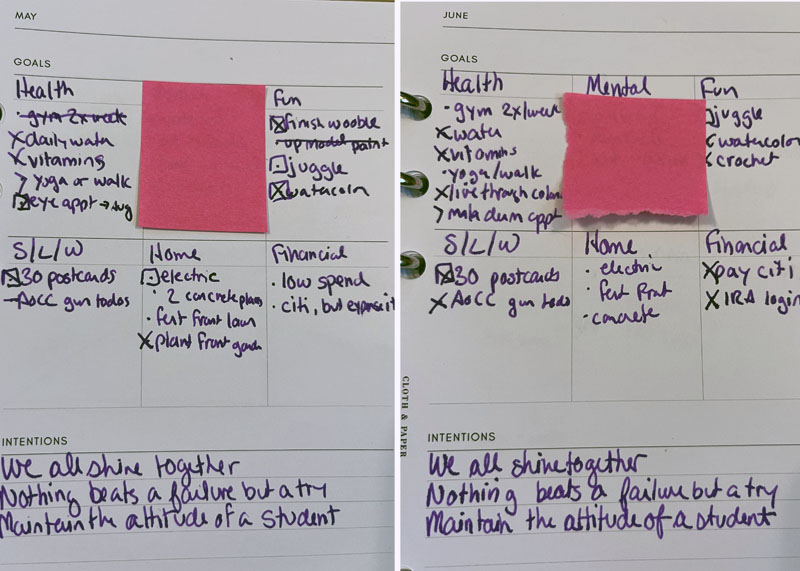 MAY
GOALS
Health
gym 2x week
X daily water
X vitamins
> yoga or walk
eye appt → Aug
Fun
finish wooble
up model paint
juggle
watercolor
S/L/W
30 postcards
AoCC gun todos
Home
electric
2 concrete
· fert front lawn
X plant front garden
Financial
· low spend
· citi, but expense it
INTENTIONS
We all shine together
Nothing beats a failure but a try
Maintain the attitude of a student
JUNE
GOALS
Health
· gym 2x/week
X water
X vitamins
· yoga/walk
X live through colon
> make derm appt
Mental
Fun
juggle
watercolor
crochet
S/L/W
30 postcards
X AoCC gun todo
Home
· electric
· fert front
· concrete
Financial
X pay citi
X IRA login
CLOTH & PAPER
INTENTIONS
We all shine together
Nothing beats a failure but a try
Maintain the attitude of a student